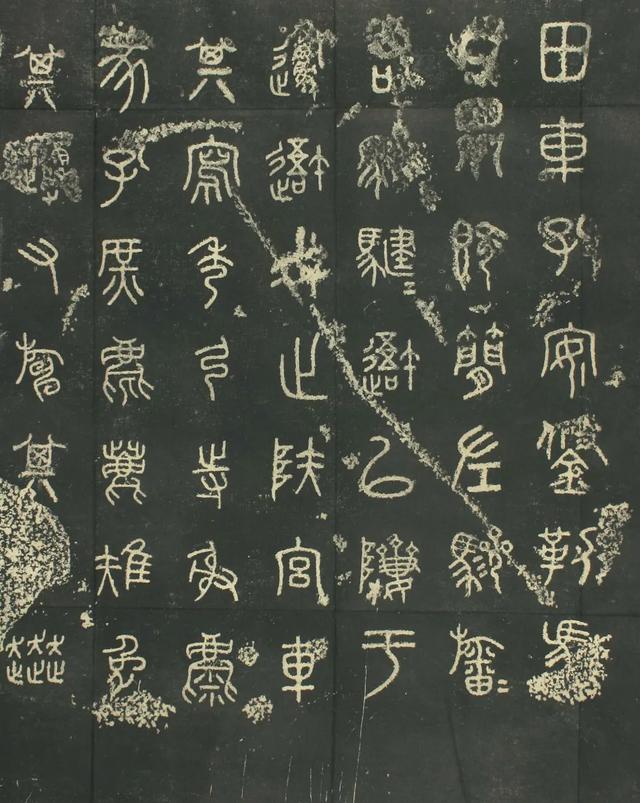 田車孔安鋚勒馬
四介既簡左驂旛=
右驂騝=𨖍以隮于
邍𨖍戎止陕宮車
其寫秀弓寺射麋
豕孔庶麀鹿雉兔
其又其